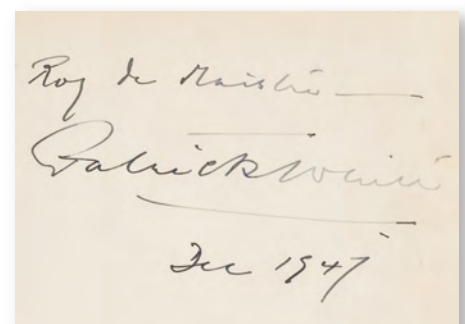 Roy de Maistre
Patrick White
Dec 1947